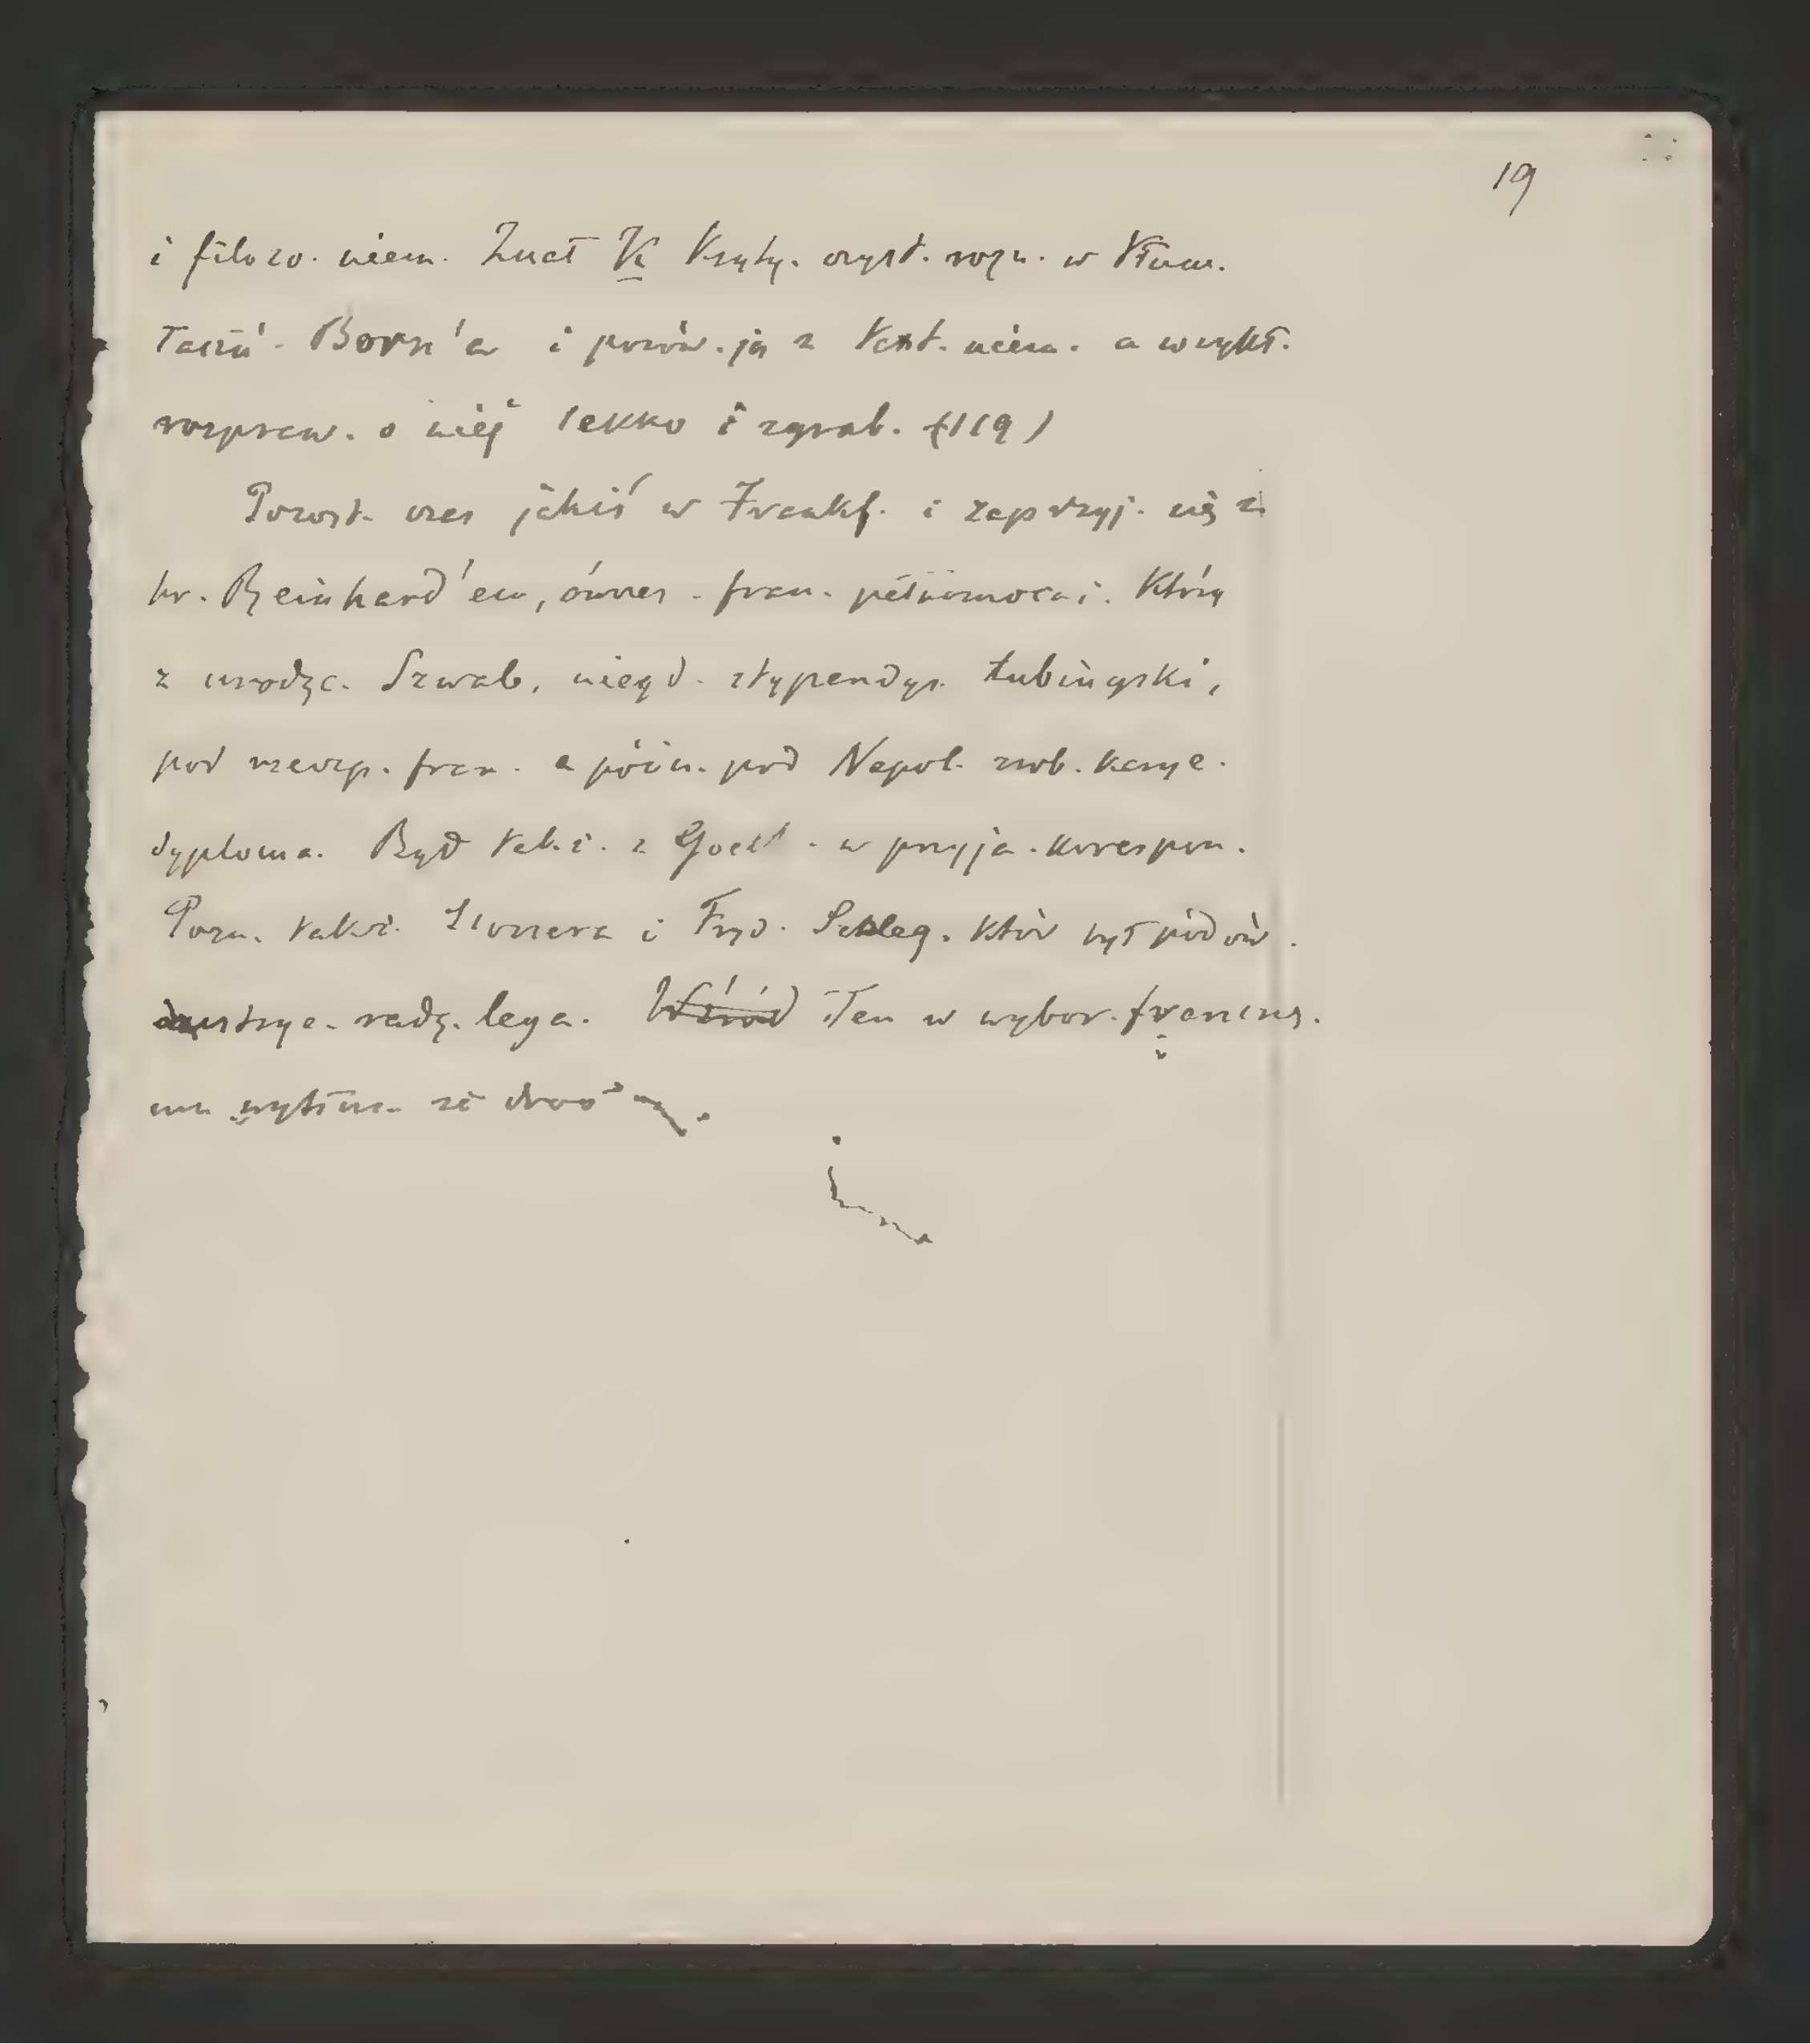 19
i filozo. niem. Znał K Kryty. czyst. rozu. w tłum.
łaciń. Born'a i porów. ją z tekst. niem. a wszykł.
rozpraw. o niej lekko i zgrab. (119)
Pozost. czas jakiś w Frankf. i zaprzyj. się z
hr. Reinhard'em, ówczes. fran. pełnomocni. który
z urodze. Szwab, niegd. stypendys. tubingski,
pod rzeczp. fran. a późn. pod Napol. zrob. karye.
dyploma. Był takż. z Goeth. w przyja. korespon.
Pozn. także. i Fryd. Schleg. któr był podów.
austrye. radz. lega. Wśród Ten w wybor. francus.
mu wytłum. że